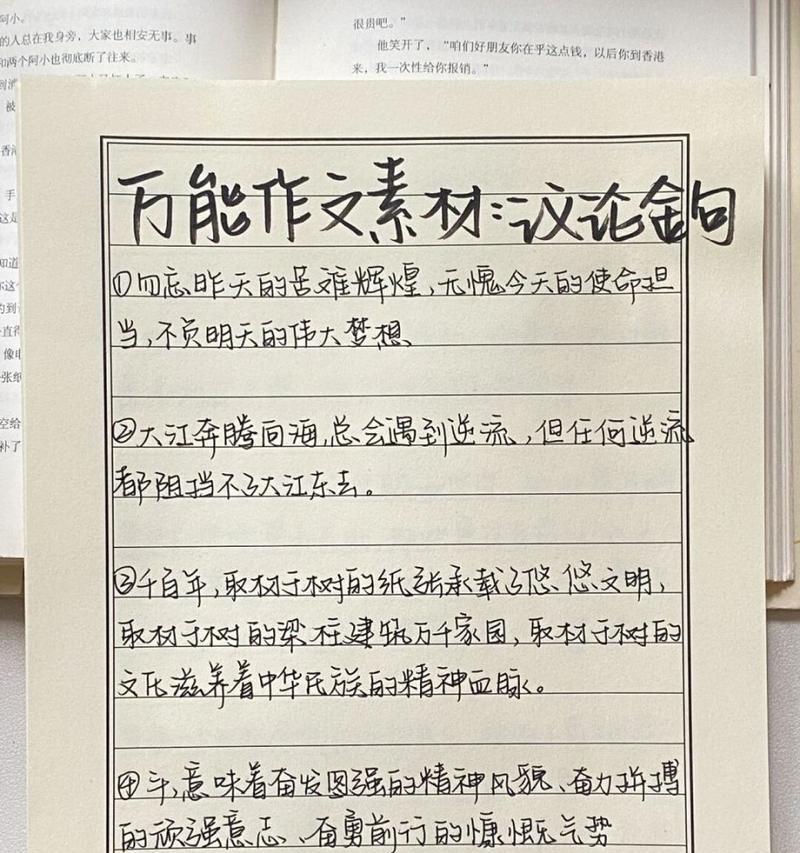 阿小。
的人总在我身旁，大家也相安无事。事
和两个阿小也彻底断了往来。
很贵吧。”
他笑开了，“咱们好朋友你在乎这点钱，以后你到香港
来，我一次性给你报销。”
万能作文素材:议论金句
①勿忘昨天的苦难辉煌,无愧今天的使命担
当,不负明天的伟大梦想
②大江奔腾向海,总会遇到逆流,但任何逆流
都阻挡不了大江东去。
③千百年,取材于树的纸张承载了悠悠文明,
取材于树的梁柱建筑万千家园,取材于树的
文化滋养着中华民族的精神血脉。
④斗,意味着奋发图强的精神风貌、奋力拼搏
的顽强意志、奋勇前行的慷慨气势